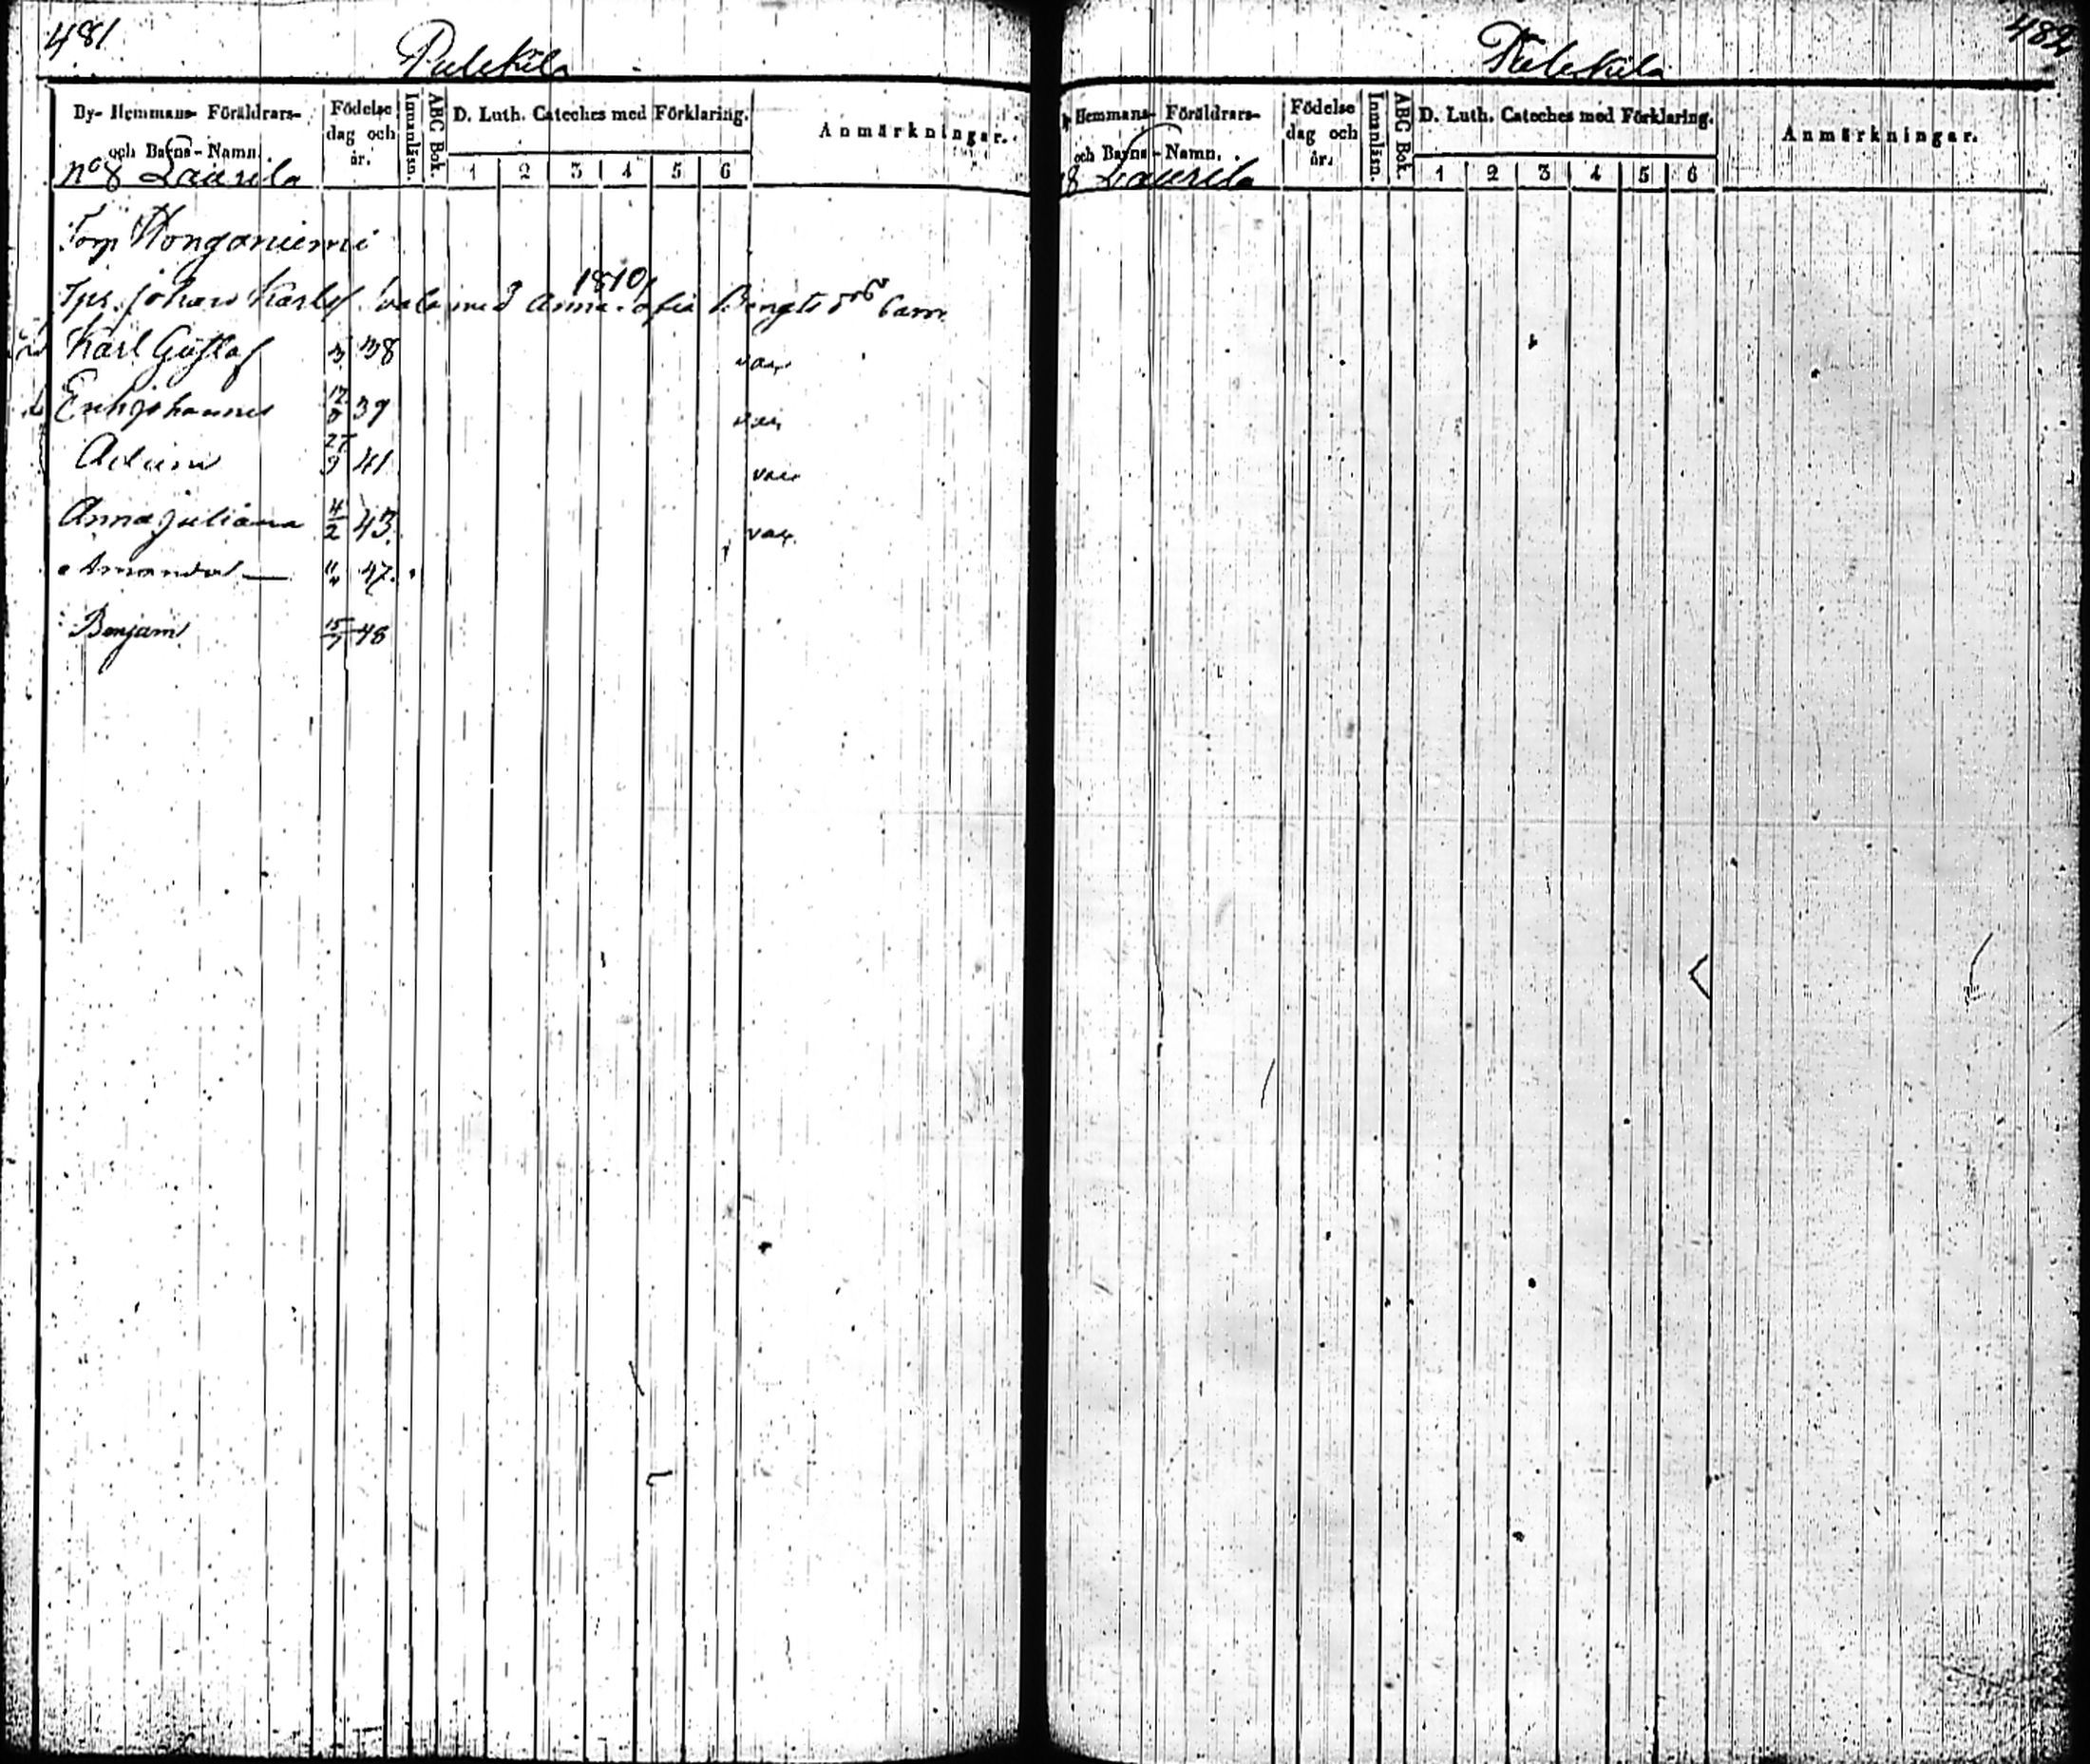 481
Pulkkila
By- Hemmans- Föräldrars- och Barns-Namn.
Födelse dag och år.
Innanläsn.
ABC Bok.
D. Luth. Cateches med Förklaring.
1 2 3 4 5 6
Anmärkningar.
No 8 Laurila
Torp Honganiemi
1810
Tpr. Johan Karls med Anna Sofia Bengtsdr barn
Karl Gustaf 38 vac
Erik Johannes 39 vac
Adam 27/9 41 vac
Anna Juliana 4/2 43. vac.
Amanda — 47.
Benjam 15/7 46
482
Pulkkila
Hemmans- Föräldrars- och Barns-Namn.
Födelse dag och år.
Innanläsn.
ABC Bok.
D. Luth. Cateches med Förklaring.
1 2 3 4 5 6
Anmärkningar.
8 Laurila